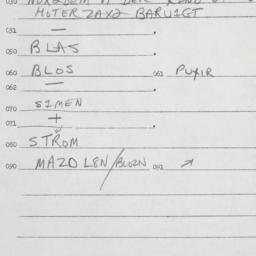 HOTER ZAX2 BARU1GT
031 —
050 BLAS
060 BLOS 061 PUXIR
062 —
070 SIMEN
071 +
080 STROM
090 MAZO L8N/BLOZN 091 →